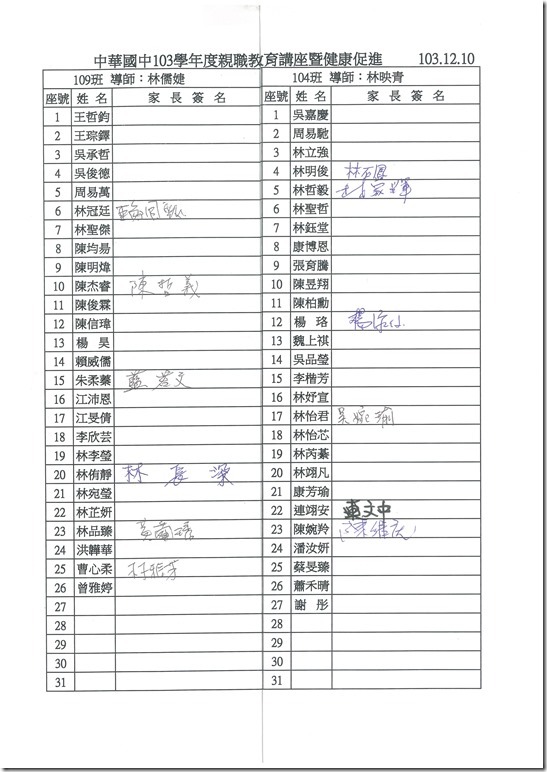 中華國中103學年度親職教育講座暨健康促進 103.12.10
109班 導師：林儒婕 104班 導師：林映青
座號 姓 名 家 長 簽 名 座號 姓 名 家 長 簽 名
1 王哲鈞 1 吳嘉慶
2 王琮鐸 2 周易馳
3 吳承哲 3 林立強
4 吳俊德 4 林明俊
5 周易萬 5 林哲毅
6 林冠廷 6 林聖哲
7 林聖傑 7 林鈺堂
8 陳均易 8 康博恩
9 陳明煒 9 張育騰
10 陳杰睿 陳哲義 10 陳昱翔
11 陳俊霖 11 陳柏勳
12 陳信瑋 12 楊 珞
13 楊 昊 13 魏上祺
14 賴威儒 14 吳品瑩
15 朱柔蓁 15 李楷芳
16 江沛恩 16 林妤宣
17 江旻倩 17 林怡君
18 李欣芸 18 林怡芯
19 林李瑩 19 林芮蓁
20 林侑靜 林長深 20 林翊凡
21 林宛瑩 21 康芳瑜
22 林芷妍 22 連翊安
23 林品臻 23 陳婉羚
24 洪韡華 24 潘汝妍
25 曹心柔 25 蔡旻臻
26 曾雅婷 26 蕭禾晴
27 27 謝 彤
28 28
29 29
30 30
31 31